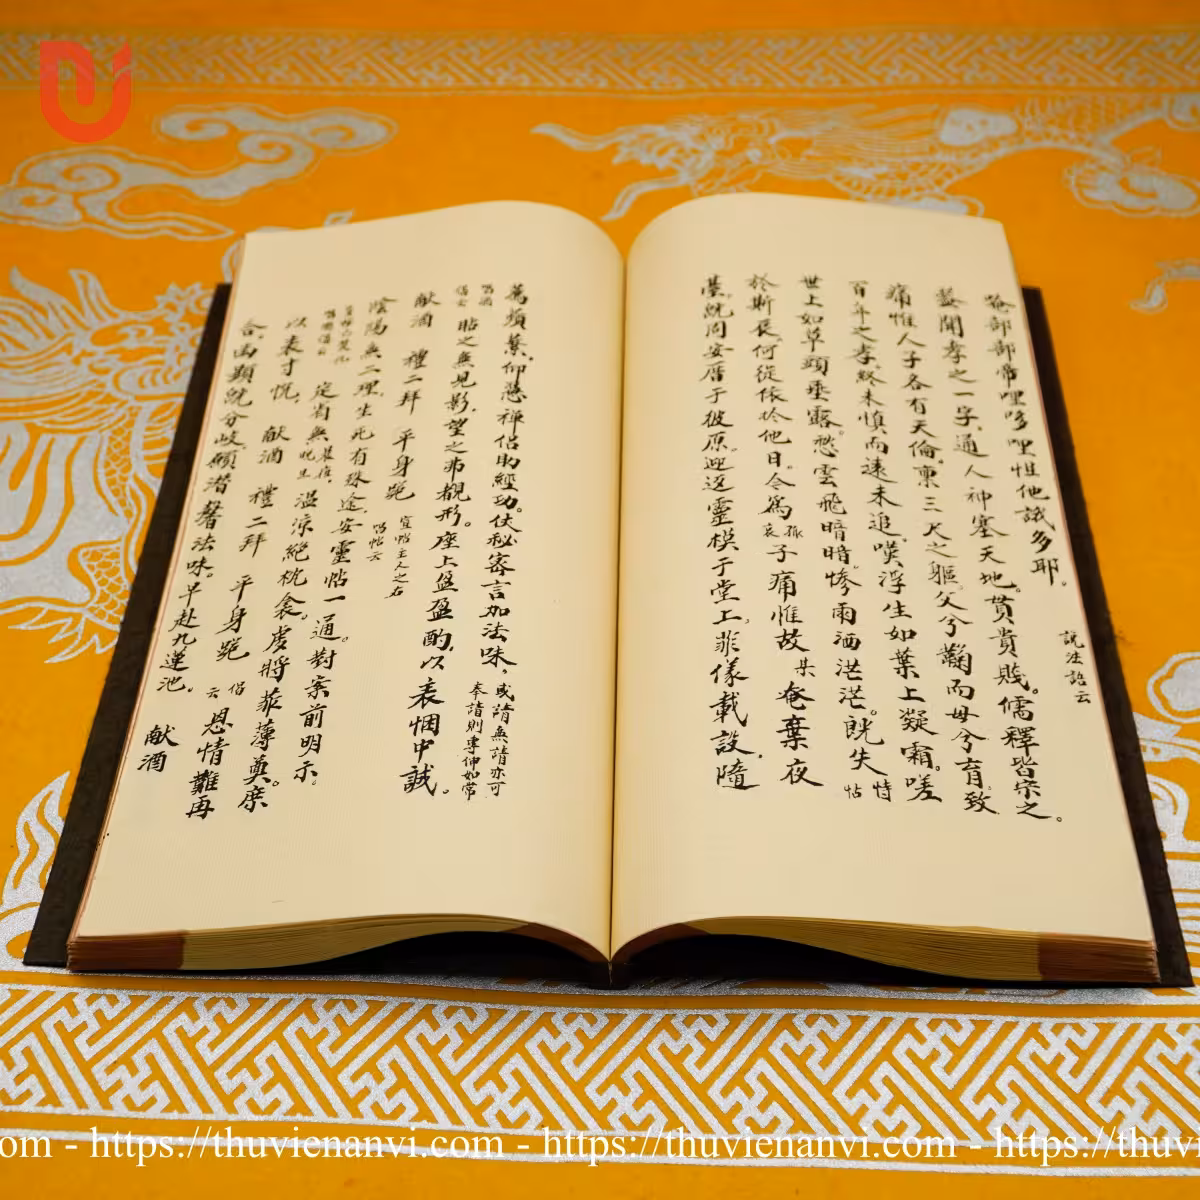 唵部部帝哩哆哩怛他誐多耶。 說法語云
蓋聞孝之一字。通人神塞天地。貫貴賤。儒釋皆宗之。
痛惟人子各有天倫。稟三天之軀。父兮鞠而母兮育。致
百年之孝。終未慎而遠未追。嘆浮生如葉上凝霜。嗟
世上如草頭垂露。愁雲飛暗暗。慘雨洒茫茫。既失恃怙
於斯晨。何從依於他日。今為孤哀子痛惟故某奄棄夜
臺。就同安厝于彼原。迎返靈模于堂上。菲儀載設。隨
為頻蘩。仰憑禪侶助經功。仗秘密言加法味。或請無請亦可奉請則專伸如常
酒云 貼之無見影。望之弗覩形。座上盆盈酌。以表悃中誠。
献酒 禮二拜 平身跪 宣帖主人之右
陰陽無二理。生死有殊途。安靈帖一通。對案前明示。
定省無晨夜。此生溫涼絕枕衾。虔將菲薄奠。庶
以表寸忱。 献酒 禮二拜 平身跪 侶云 恩情難再
合。幽顯就分岐。願潛馨法味。早赴九蓮池。 献酒
com - https://thuvienanvi.com - https://thuvienanvi.com - https://thuvi